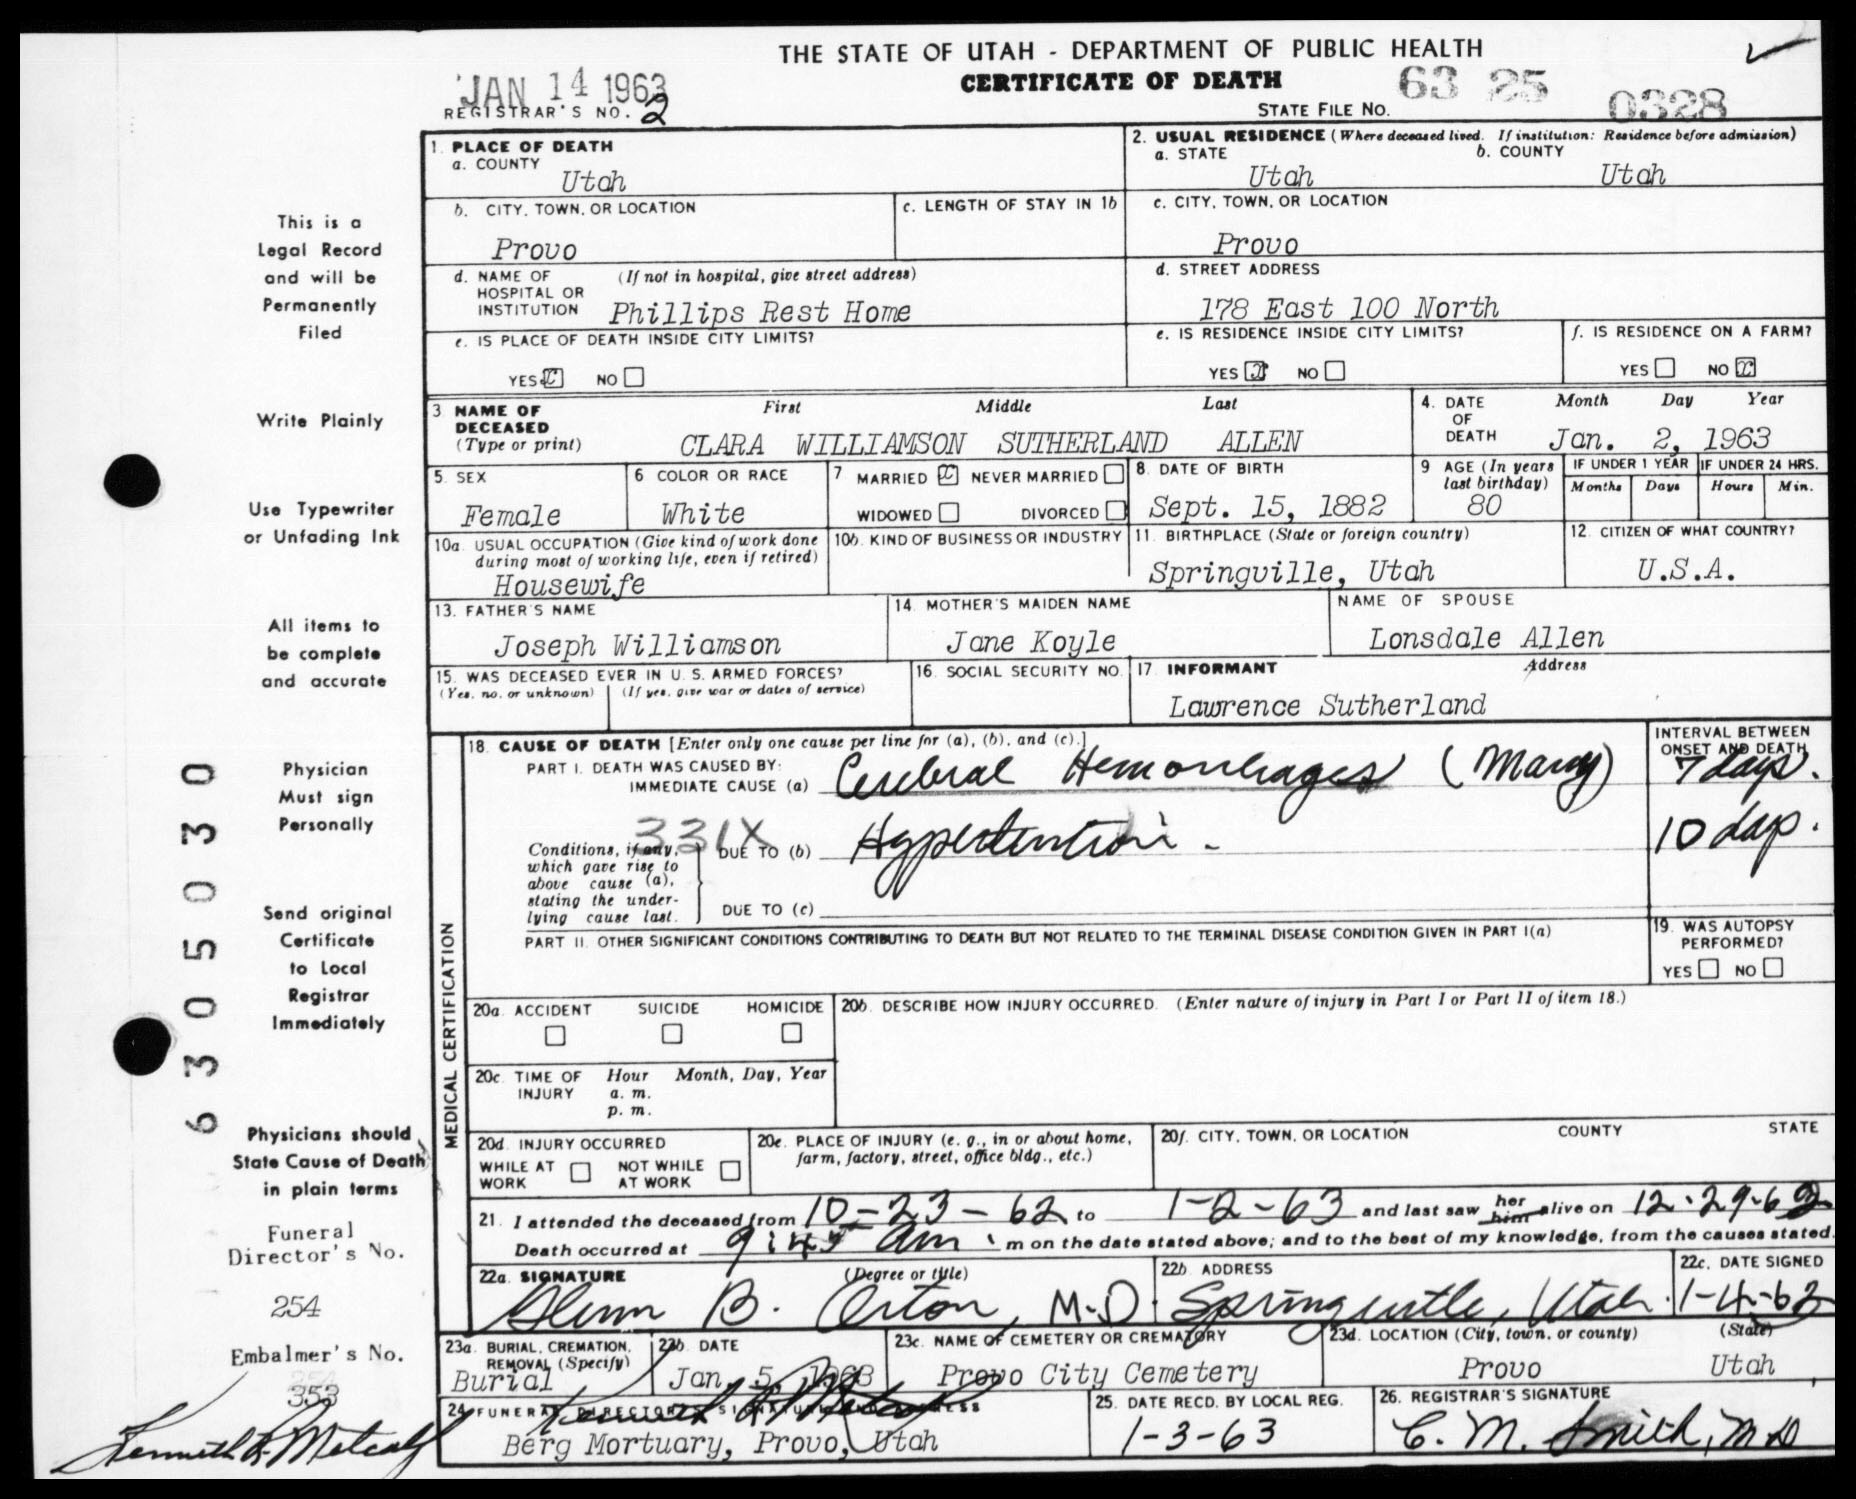 THE STATE OF UTAH - DEPARTMENT OF PUBLIC HEALTH
CERTIFICATE OF DEATH
JAN 14 1963
REGISTRAR'S NO. 2
STATE FILE NO. 63 25 0328
This is a
Legal Record
and will be
Permanently
Filed
Write Plainly
Use Typewriter
or Unfading Ink
All items to
be complete
and accurate
Physician
Must sign
Personally
Send original
Certificate
to Local
Registrar
Immediately
Physicians should
State Cause of Death
in plain terms
Funeral
Director's No.
254
Embalmer's No.
353
Kenneth R. Metcalf
6305030
1. PLACE OF DEATH
a. COUNTY
Utah
2. USUAL RESIDENCE (Where deceased lived. If institution: Residence before admission)
a. STATE
Utah
b. COUNTY
Utah
b. CITY, TOWN, OR LOCATION
Provo
c. LENGTH OF STAY IN 1b
c. CITY, TOWN, OR LOCATION
Provo
d. NAME OF HOSPITAL OR INSTITUTION
(If not in hospital, give street address)
Phillips Rest Home
d. STREET ADDRESS
178 East 100 North
e. IS PLACE OF DEATH INSIDE CITY LIMITS?
YES x NO
e. IS RESIDENCE INSIDE CITY LIMITS?
YES x NO
f. IS RESIDENCE ON A FARM?
YES NO x
3. NAME OF DECEASED
(Type or print)
First Middle Last
CLARA WILLIAMSON SUTHERLAND ALLEN
4. DATE OF DEATH
Month Day Year
Jan. 2, 1963
5. SEX
Female
6 COLOR OR RACE
White
7 MARRIED x NEVER MARRIED
WIDOWED DIVORCED
8. DATE OF BIRTH
Sept. 15, 1882
9 AGE (In years last birthday)
80
IF UNDER 1 YEAR
Months Days
IF UNDER 24 HRS.
Hours Min.
10a. USUAL OCCUPATION (Give kind of work done during most of working life, even if retired)
Housewife
10b. KIND OF BUSINESS OR INDUSTRY
11. BIRTHPLACE (State or foreign country)
Springville, Utah
12. CITIZEN OF WHAT COUNTRY?
U.S.A.
13. FATHER'S NAME
Joseph Williamson
14. MOTHER'S MAIDEN NAME
Jane Koyle
NAME OF SPOUSE
Lonsdale Allen
15. WAS DECEASED EVER IN U. S. ARMED FORCES?
(Yes, no, or unknown) (If yes, give war or dates of service)
16. SOCIAL SECURITY NO.
17. INFORMANT Address
Lawrence Sutherland
MEDICAL CERTIFICATION
18. CAUSE OF DEATH [Enter only one cause per line for (a), (b), and (c).]
PART I. DEATH WAS CAUSED BY:
IMMEDIATE CAUSE (a) Cerebral Hemorrhages (Many)
INTERVAL BETWEEN ONSET AND DEATH
7 days.
331X
Conditions, if any, which gave rise to above cause (a), stating the underlying cause last.
DUE TO (b) Hypertention -
10 days.
DUE TO (c)
PART II. OTHER SIGNIFICANT CONDITIONS CONTRIBUTING TO DEATH BUT NOT RELATED TO THE TERMINAL DISEASE CONDITION GIVEN IN PART I(a)
19. WAS AUTOPSY PERFORMED?
YES NO
20a. ACCIDENT SUICIDE HOMICIDE
20b. DESCRIBE HOW INJURY OCCURRED. (Enter nature of injury in Part I or Part II of item 18.)
20c. TIME OF INJURY
Hour Month, Day, Year
a. m.
p. m.
20d. INJURY OCCURRED
WHILE AT WORK NOT WHILE AT WORK
20e. PLACE OF INJURY (e. g., in or about home, farm, factory, street, office bldg., etc.)
20f. CITY, TOWN, OR LOCATION COUNTY STATE
21. I attended the deceased from 10-23-62 to 1-2-63 and last saw her him alive on 12-29-62
Death occurred at 9:45 am m on the date stated above; and to the best of my knowledge, from the causes stated.
22a. SIGNATURE (Degree or title)
Glenn B. Orton, M.D.
22b. ADDRESS
Springville, Utah.
22c. DATE SIGNED
1-4-63
23a. BURIAL, CREMATION, REMOVAL (Specify)
Burial
23b. DATE
Jan. 5, 1963
23c. NAME OF CEMETERY OR CREMATORY
Provo City Cemetery
23d. LOCATION (City, town, or county) (State)
Provo Utah
24. FUNERAL DIRECTOR'S SIGNATURE AND ADDRESS
Kenneth R. Metcalf
Berg Mortuary, Provo, Utah
25. DATE RECD. BY LOCAL REG.
1-3-63
26. REGISTRAR'S SIGNATURE
C. M. Smith, MD